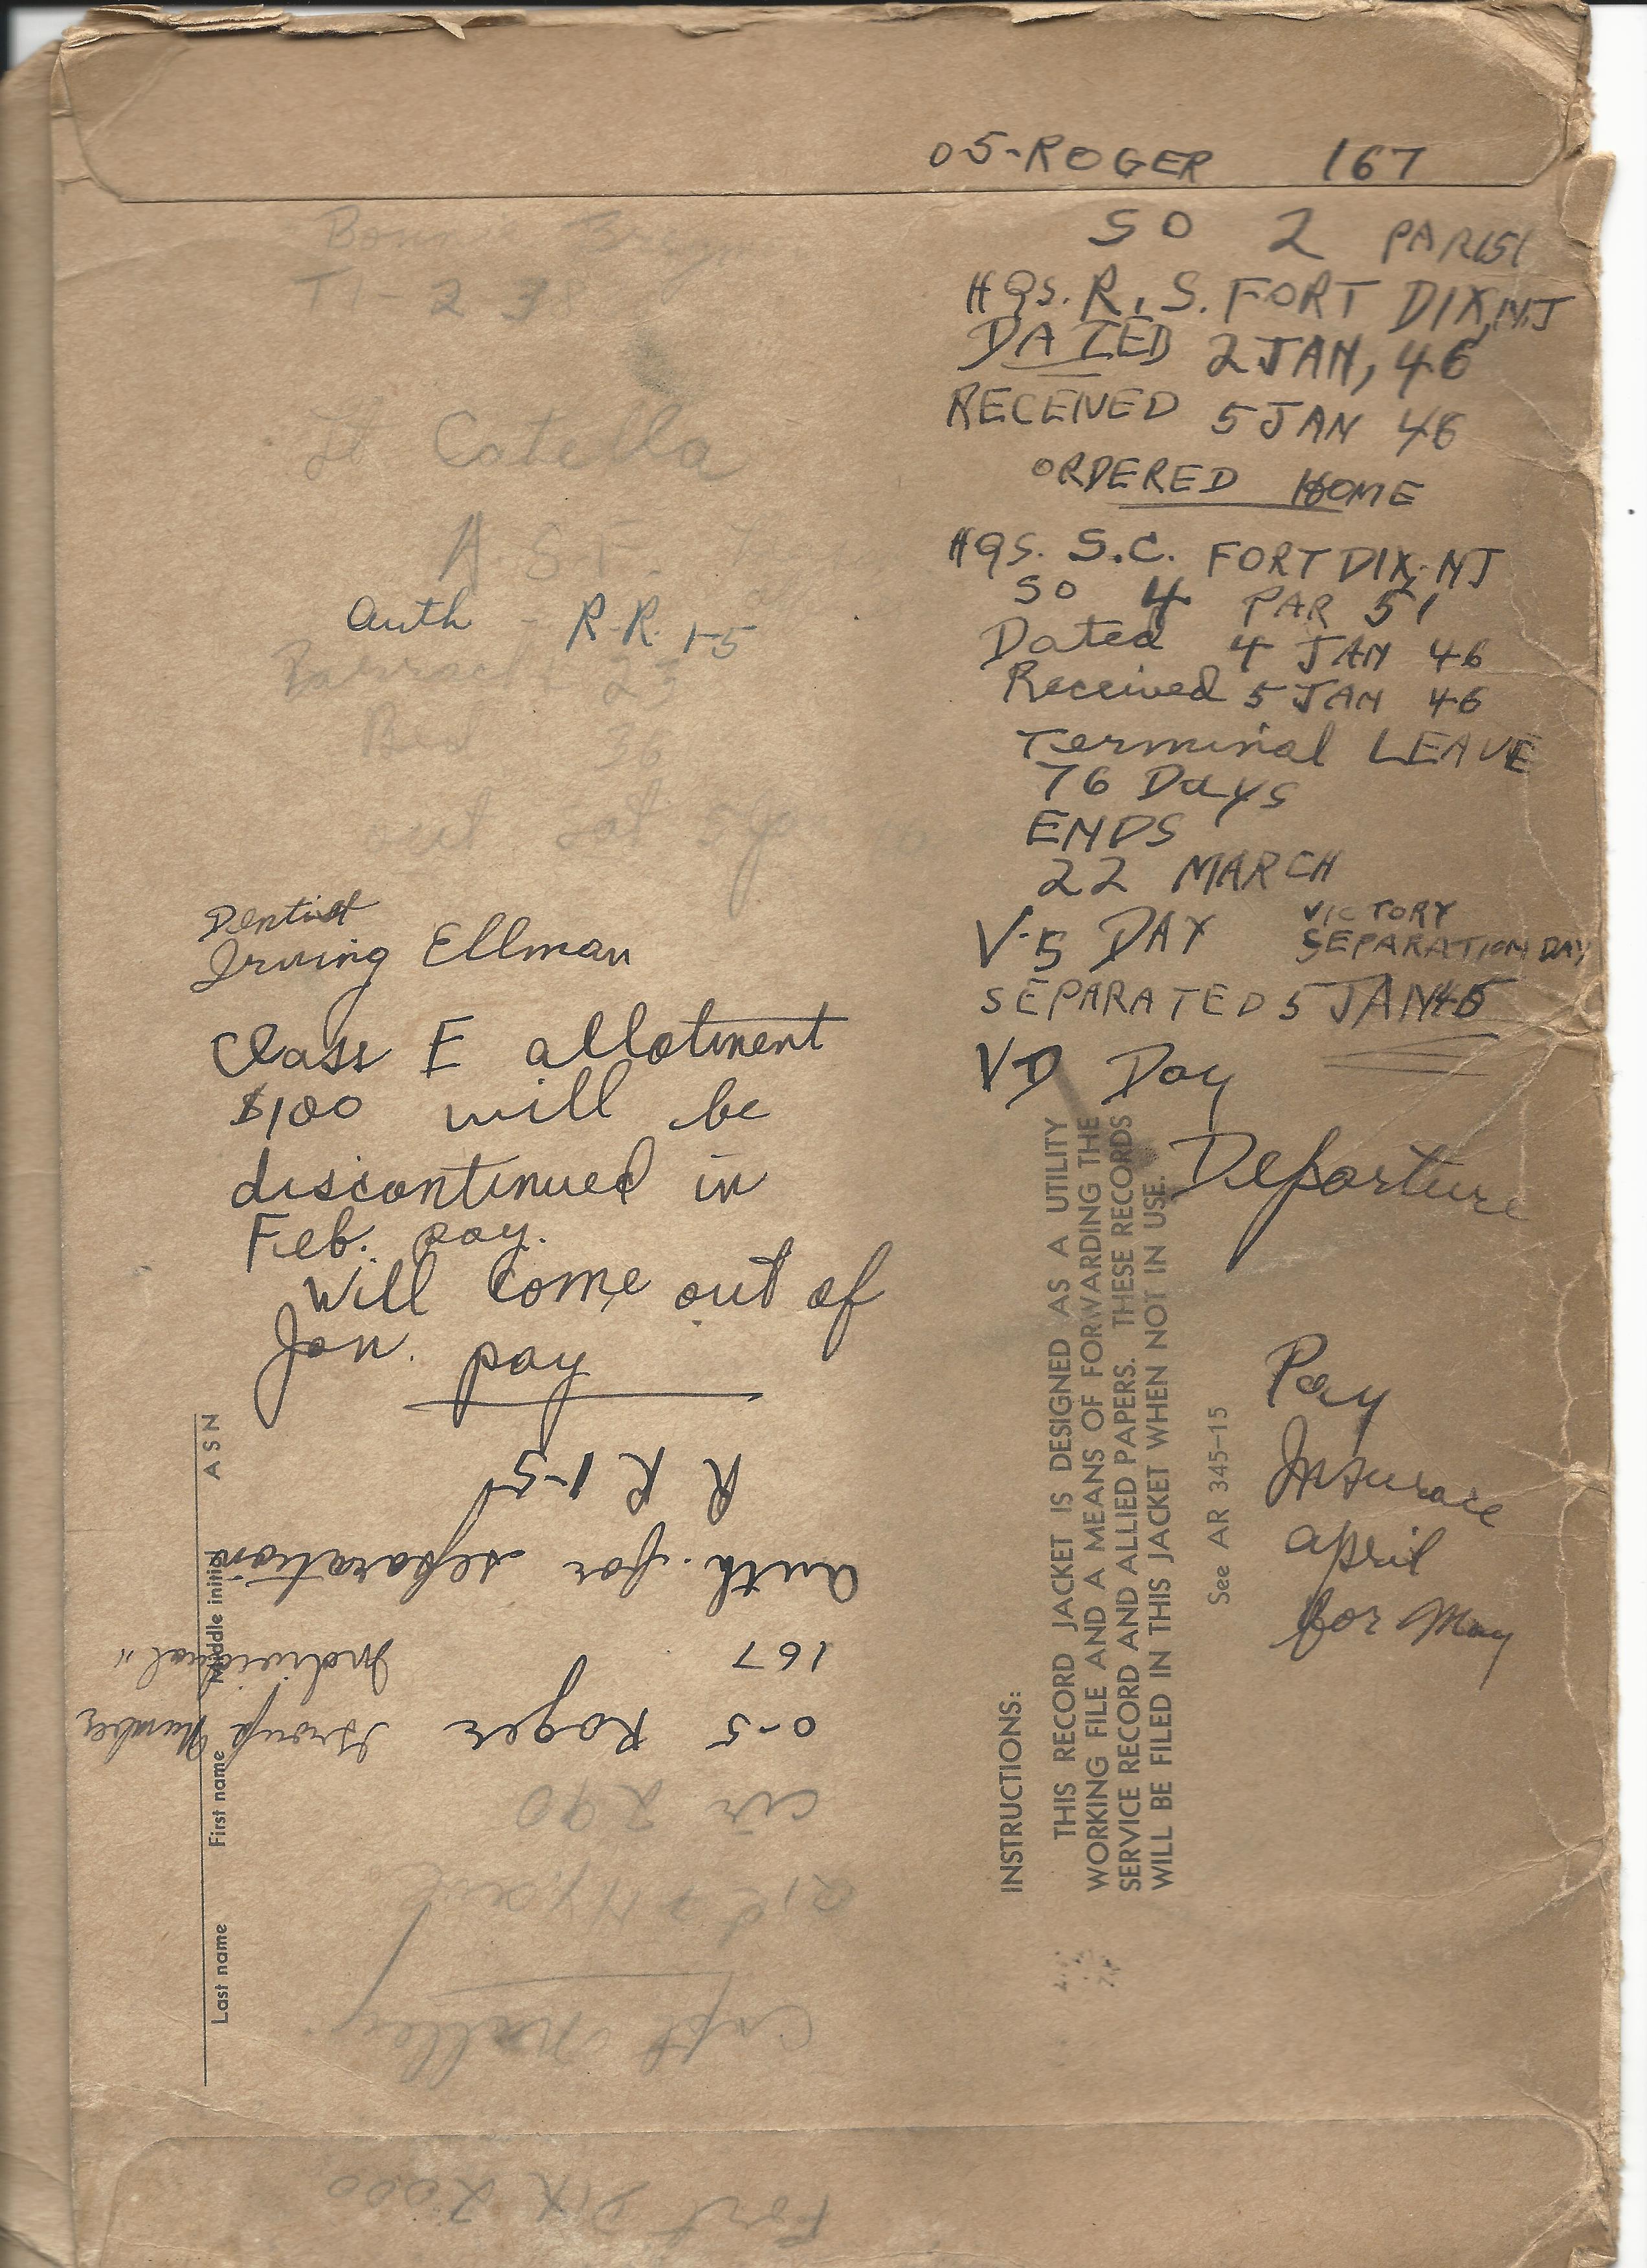 05-ROGER 167
SO 2 PAR 151
HQS. R.S. FORT DIX, NJ
DATED 2 JAN, 46
RECEIVED 5 JAN 46
ORDERED HOME
HQS. S.C. FORT DIX, NJ
SO 4 PAR 51
Dated 4 JAN 46
Received 5 JAN 46
Terminal LEAVE
76 Days
ENDS
22 MARCH
V-S DAY VICTORY
SEPARATION DAY
SEPARATED 5 JAN 46
VD Day
Departure
Pay
Insurace
april
for May
Lt Catella
A.S.F.
auth - R.R. 1-5
Barrack 25
Bed 36
Dentist
Irving Ellman
Class E allotment
$100 will be
discontinued in
Feb. pay.
Will come out of
Jan. pay
Fort DIX 2000
Capt Malley
cir 290
0-5 Roger Group Number
167 Individual "
auth. for separation
R R 1-5
Last name First name Middle initial ASN
INSTRUCTIONS:
THIS RECORD JACKET IS DESIGNED AS A UTILITY
WORKING FILE AND A MEANS OF FORWARDING THE
SERVICE RECORD AND ALLIED PAPERS. THESE RECORDS
WILL BE FILED IN THIS JACKET WHEN NOT IN USE.
See AR 345-15